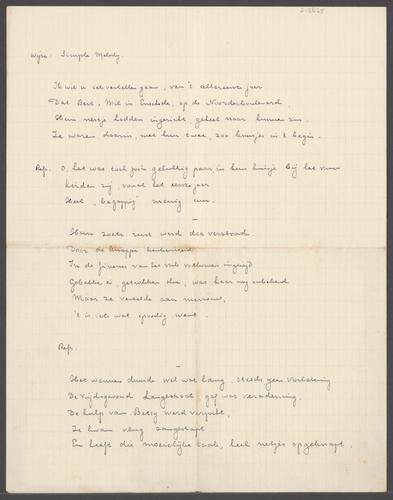 Wijze: Simple Melody.
Ik wil u iets vertellen gaan, van 't allereerste jaar
Dat Bert, Mil in Enschede, op de Noorderboulevard
Hun nestje hadden ingericht, geheel naar hunnen zin.
Ze waren daarin, met hun twee, zoo knusjes in 't begin.
Ref. O, het was toch zoo'n gelukkig paar, in hun huisje bij het vuur
zij, vanaf het eerste jaar
Heel "happy" menig uur.
Hun zoete rust werd dra verstoord.
Door de knappe
In de van het volk
Gebakken ei, gebakken, was haar nog onbekend
Maar ze vertelde aan mevrouw,
't is iets wat spoedig went.
Ref.
Het wennen duurde wel wat lang, steeds geen verbetering
De Langestraat, gaf was verandering.
De hulp van Betsy werd verzocht,
Ze kwam vlug aangestapt
En heeft die moeielijke taak, heel netjes opgeknapt.